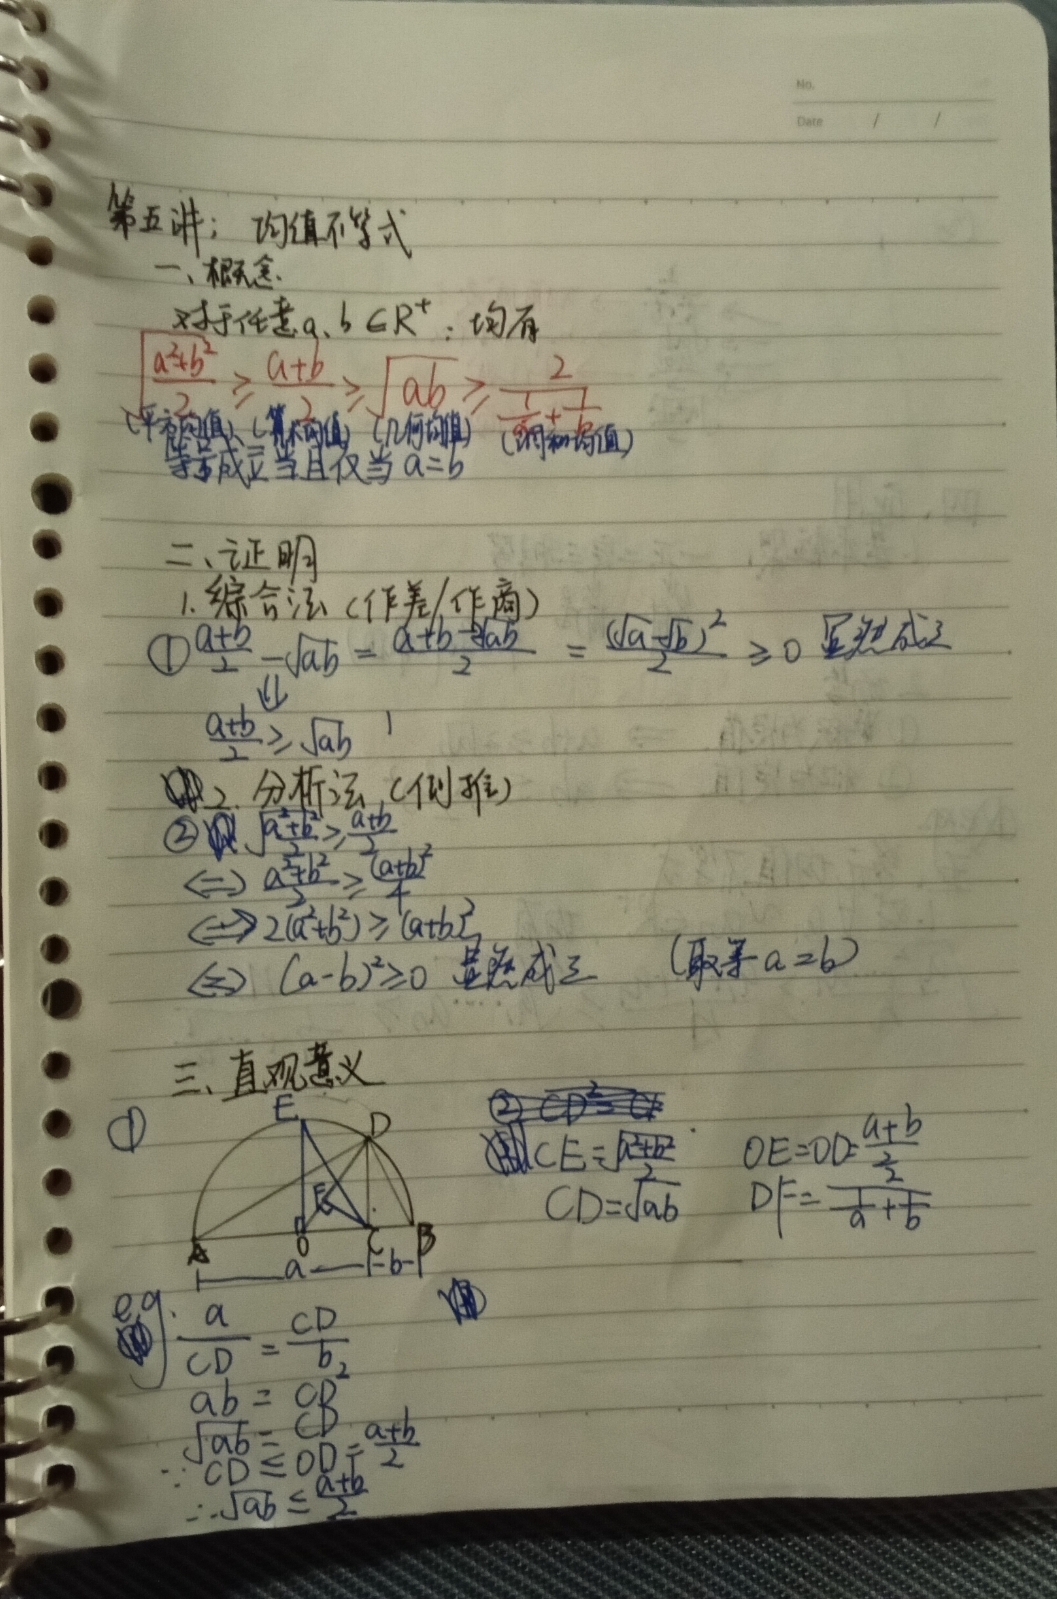 No.
Date / /
第五讲：均值不等式
一、概念
对于任意a、b∈R⁺：均有
√((a²+b²)/2) ≥ (a+b)/2 ≥ √(ab) ≥ 2/(1/a+1/b)
(平方均值) (算术均值) (几何均值) (调和均值)
等号成立当且仅当 a=b
二、证明
1. 综合法（作差/作商）
① (a+b)/2 - √(ab) = (a+b-2√(ab))/2 = (√a-√b)²/2 ≥ 0 显然成立
⇓
(a+b)/2 ≥ √(ab)
2. 分析法（倒推）
② √((a²+b²)/2) ≥ (a+b)/2
⇔ (a²+b²)/2 ≥ (a+b)²/4
⇔ 2(a²+b²) ≥ (a+b)²
⇔ (a-b)² ≥ 0 显然成立 （取等 a=b）
三、直观意义
①
E D
F
A O C B
a b
CE=√((a²+b²)/2) OE=OD=(a+b)/2
CD=√(ab) DF=2/(1/a+1/b)
e.g. a/CD = CD/b
ab = CD²
√(ab) = CD
∵ CD ≤ OD = (a+b)/2
∴ √(ab) ≤ (a+b)/2